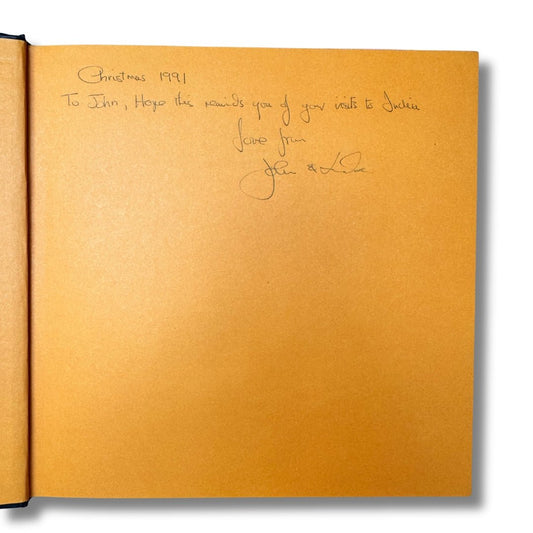 Christmas 1991
To John, Hope this reminds you of your visits to
love from
John &